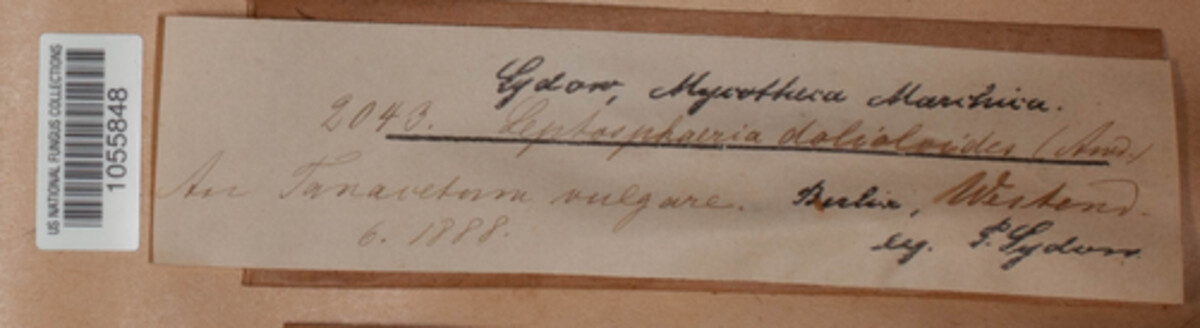 US NATIONAL FUNGUS COLLECTIONS
1055848
Sydow, Mycotheca Marchica.
2043. Leptosphaeria dolioloides (Awd.)
An Tanacetum vulgare. Berlin, Westend.
6. 1888.
leg. P. Sydow.